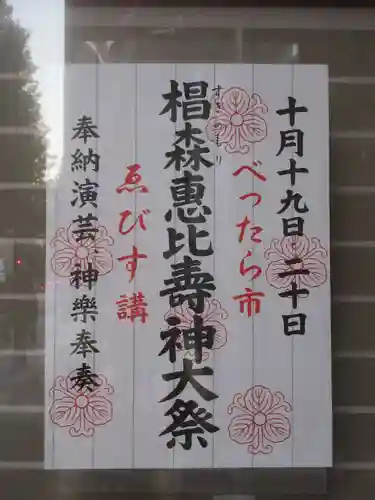 十月十九日・二十日
べったら市
椙森恵比寿神大祭
すぎのもり
ゑびす講
奉納演芸 神樂奉奏